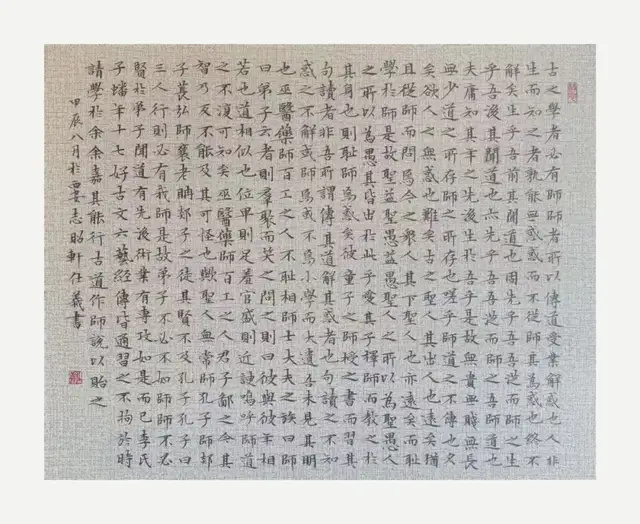 古之學者必有師師者所以傳道受業解惑也人非
生而知之者孰能無惑惑而不從師其為惑也終不
解矣生乎吾前其聞道也固先乎吾吾從而師之生
乎吾後其聞道也亦先乎吾吾從而師之吾師道也
夫庸知其年之先後生於吾乎是故無貴無賤無長
無少道之所存師之所存也嗟乎師道之不傳也久
矣欲人之無惑也難矣古之聖人其出人也遠矣猶
且從師而問焉今之衆人其下聖人也亦遠矣而恥
學於師是故聖益聖愚益愚聖人之所以為聖愚人
之所以為愚其皆出於此乎愛其子擇師而教之於
其身也則恥師焉惑矣彼童子之師授之書而習其
句讀者非吾所謂傳其道解其惑者也句讀之不知
惑之不解或師焉或不焉小學而大遺吾未見其明
也巫醫藥師百工之人不恥相師士大夫之族曰師
曰弟子云者則羣聚而笑之問之則曰彼與彼年相
若也道相似也位卑則足羞官盛則近諛嗚呼師道
之不復可知矣巫醫藥師百工之人君子鄙之今其
智乃反不能及其可怪也歟聖人無常師孔子師郯
子萇弘師襄老聃郯子之徒其賢不及孔子孔子曰
三人行則必有我師是故弟子不必不如師師不必
賢於弟子聞道有先後術業有專攻如是而已李氏
子蟠年十七好古文六藝經傳皆通習之不拘於時
請學於余余嘉其能行古道作師說以貽之
甲辰八月於西安志昭軒任義書